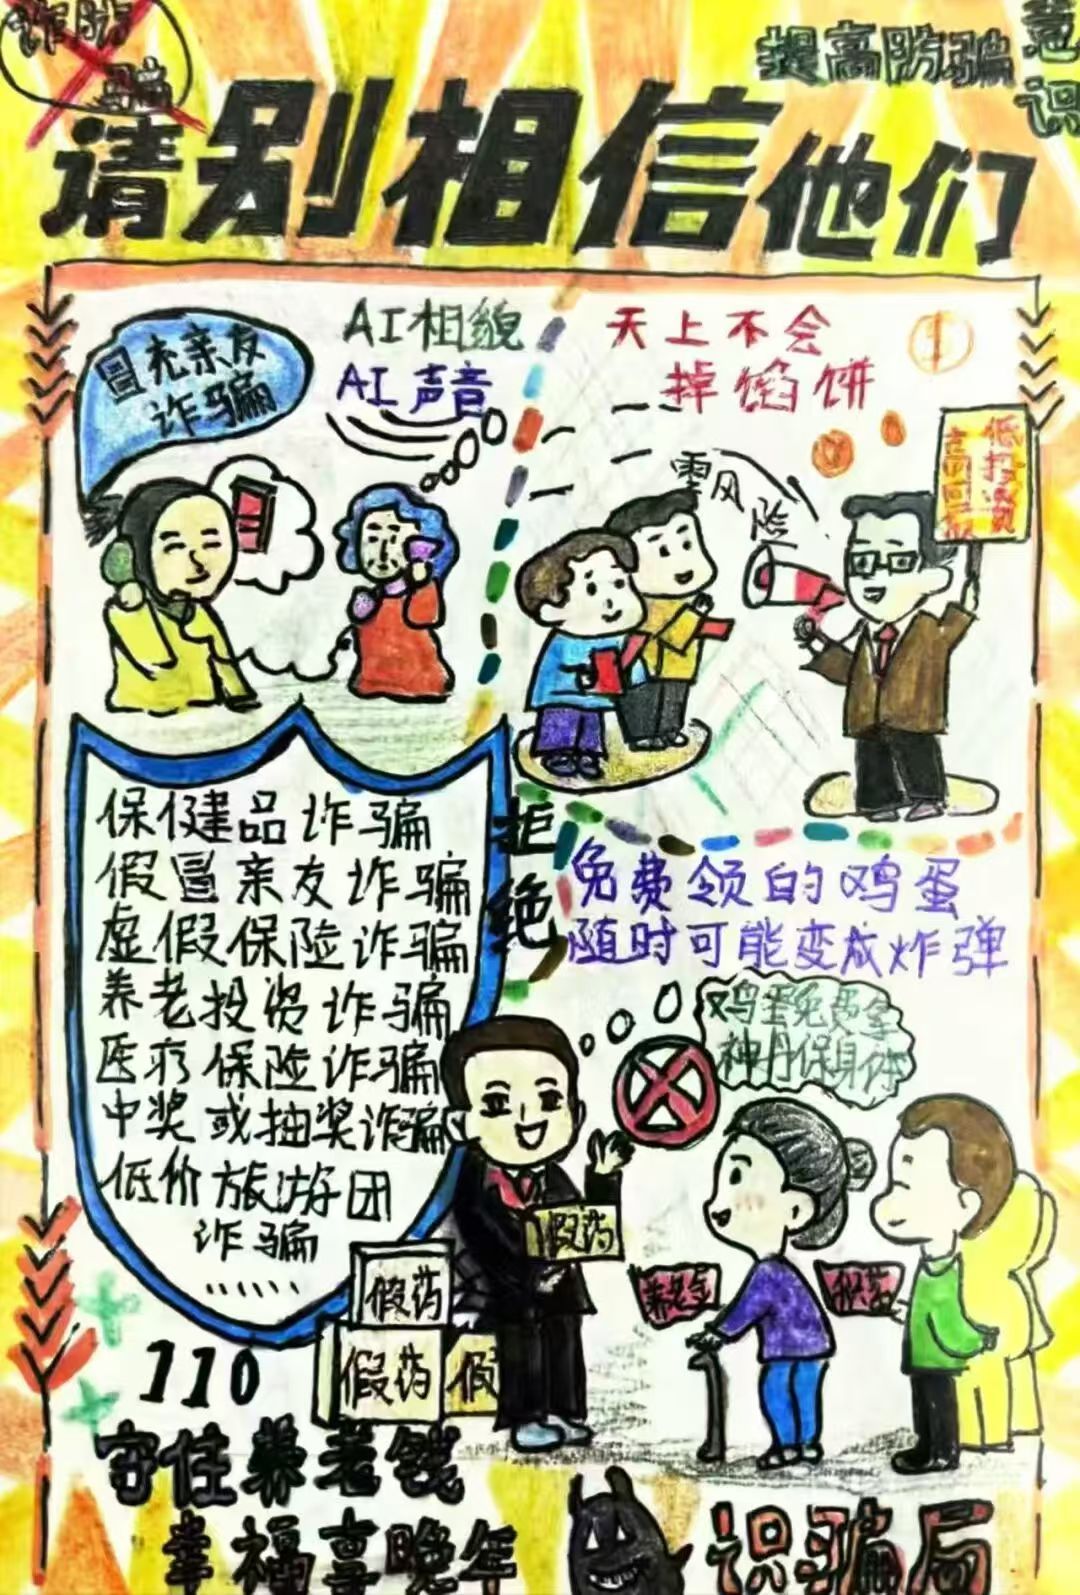 诈骗
骗
提高防骗意识
请别相信他们
冒充亲友
诈骗
AI相貌
AI声音
天上不会
掉馅饼
零风险
低投资
高回报
保健品诈骗
假冒亲友诈骗
虚假保险诈骗
养老投资诈骗
医疗保险诈骗
中奖或抽奖诈骗
低价旅游团
诈骗
……
拒绝
免费领的鸡蛋
随时可能变成炸弹
鸡蛋免费拿
神丹保身体
假药
养老金
假药
假药
假
110
守住养老钱
幸福享晚年
识骗局